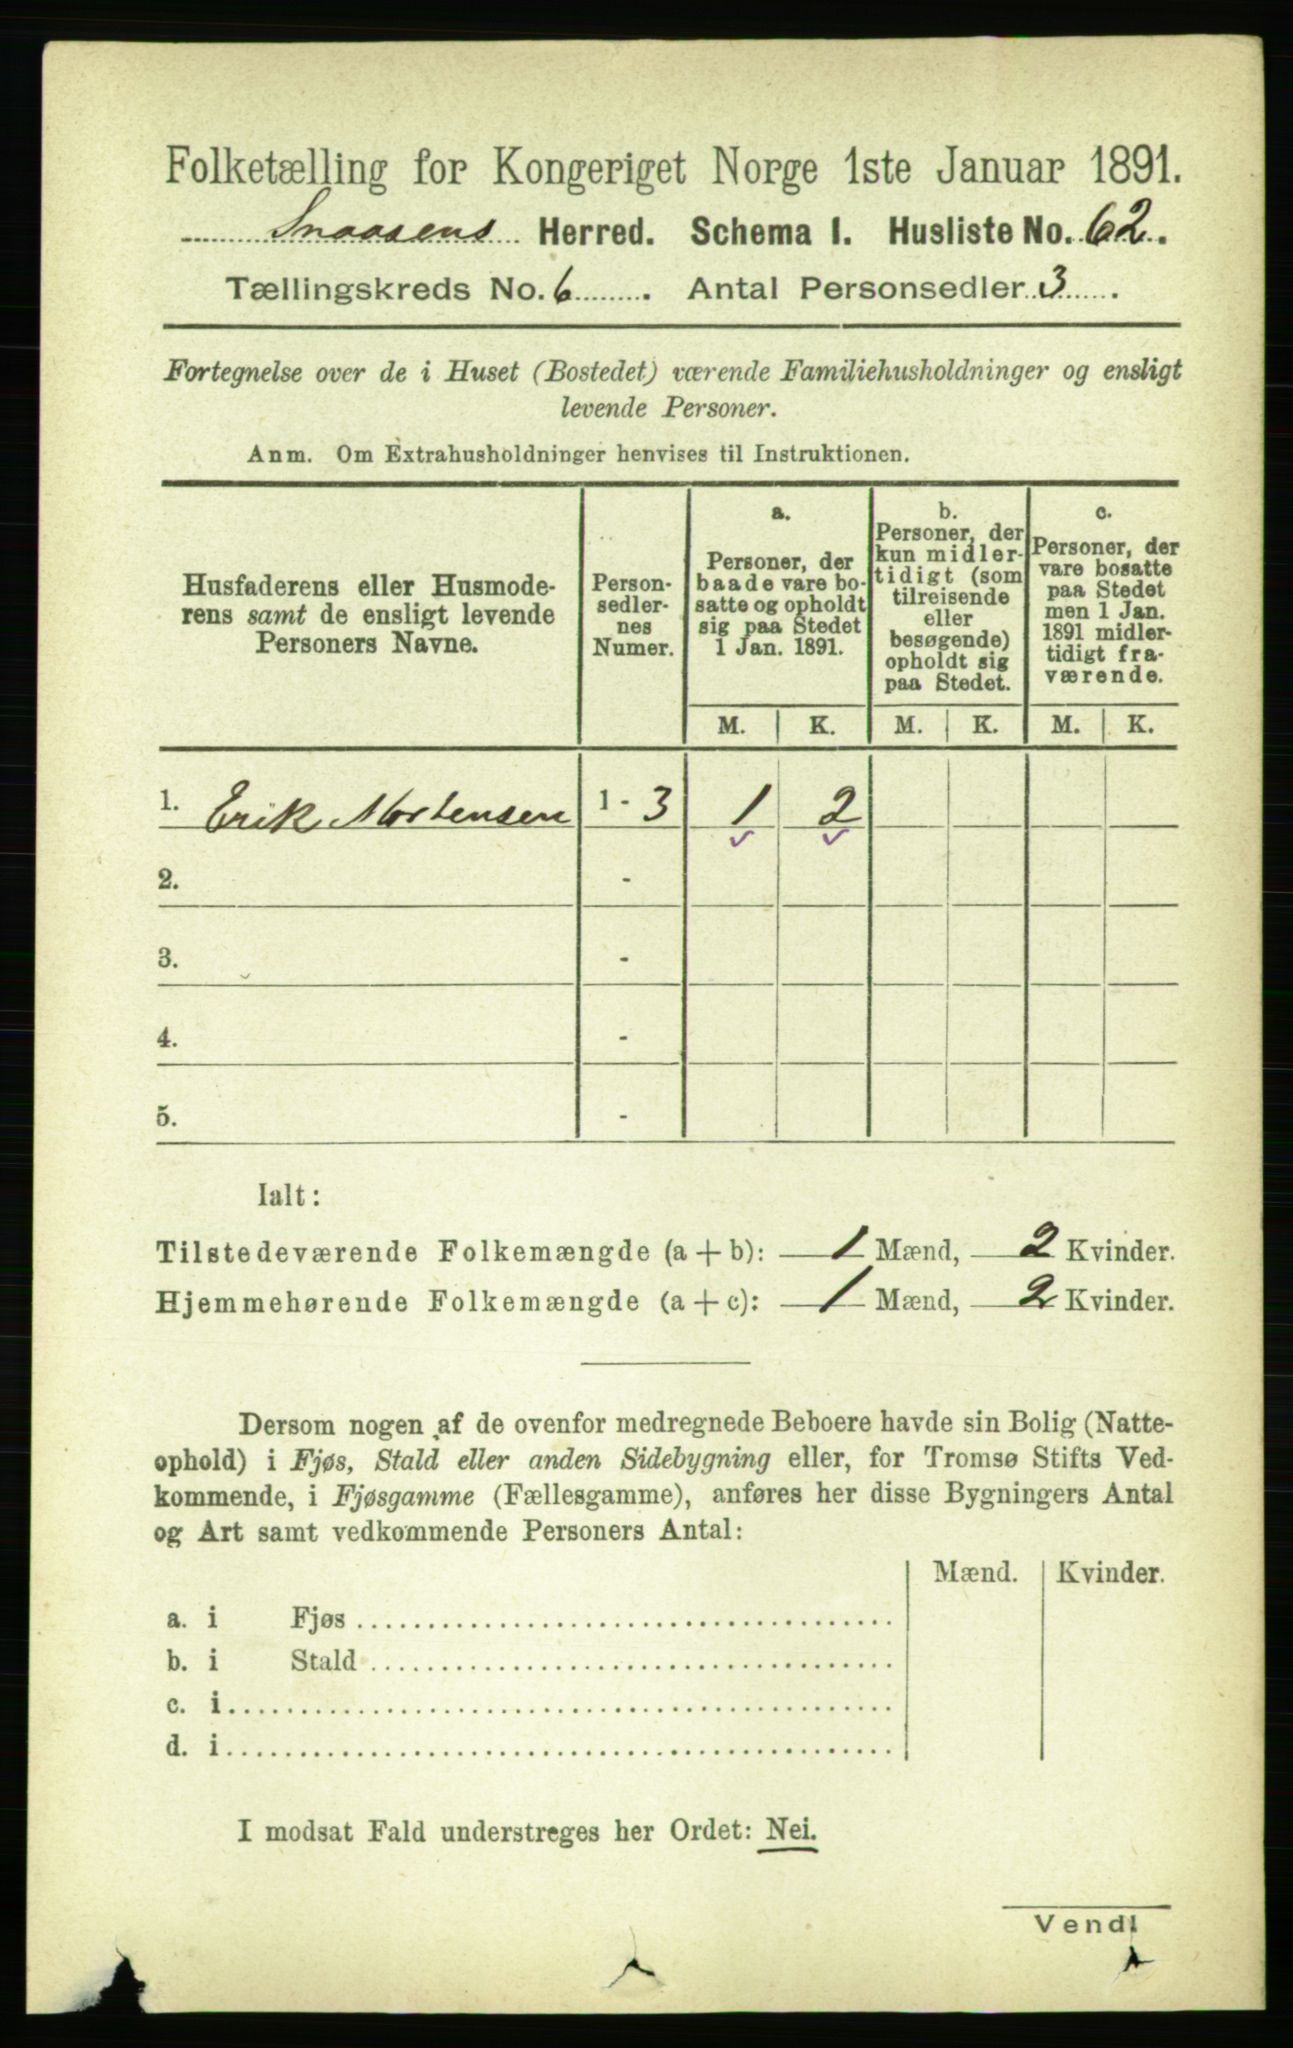 Folketælling for Kongeriget Norge 1ste Januar 1891.
Snaasens Herred. Schema I. Husliste No. 62.
Tællingskreds No. 6. Antal Personsedler 3.
Fortegnelse over de i Huset (Bostedet) værende Familiehusholdninger og ensligt
levende Personer.
Anm. Om Extrahusholdninger henvises til Instruktionen.
Husfaderens eller Husmode-
rens samt de ensligt levende
Personers Navne.
Person-
sedler-
nes
Numer.
a.
Personer, der
baade vare bo-
satte og opholdt
sig paa Stedet
1 Jan. 1891.
b.
Personer, der
kun midler-
tidigt (som
tilreisende
eller
besøgende)
opholdt sig
paa Stedet.
c.
Personer, der
vare bosatte
paa Stedet
men 1 Jan.
1891 midler-
tidigt fra-
værende.
M. K. M. K. M. K.
1. Erik Mortensen 1 - 3 1 2
2. -
3. -
4. -
5. -
Ialt:
Tilstedeværende Folkemængde (a + b): 1 Mænd, 2 Kvinder.
Hjemmehørende Folkemængde (a + c): 1 Mænd, 2 Kvinder.
Dersom nogen af de ovenfor medregnede Beboere havde sin Bolig (Natte-
ophold) i Fjøs, Stald eller anden Sidebygning eller, for Tromsø Stifts Ved-
kommende, i Fjøsgamme (Fællesgamme), anføres her disse Bygningers Antal
og Art samt vedkommende Personers Antal:
Mænd. Kvinder.
a. i Fjøs
b. i Stald
c. i
d. i
I modsat Fald understreges her Ordet: Nei.
Vend!